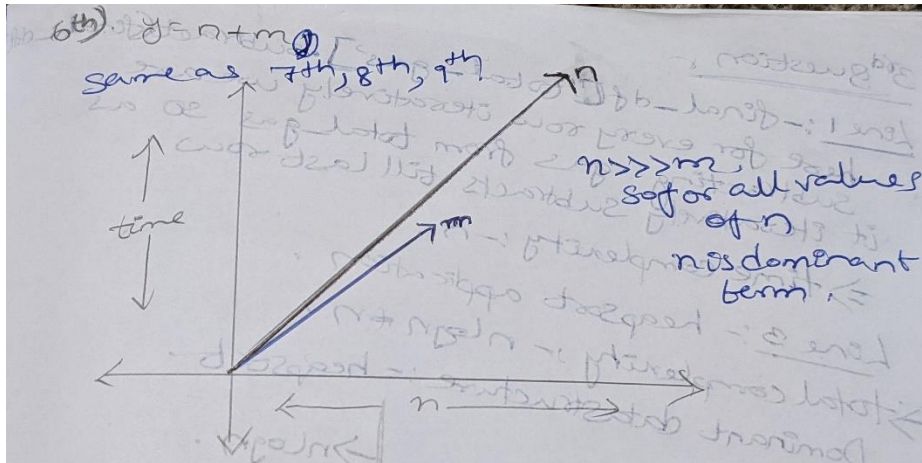 6th). y = n+m
same as 7th, 8th, 9th
n
n>>>m,
so for all values
of n
n is dominant
term.
m
time
n